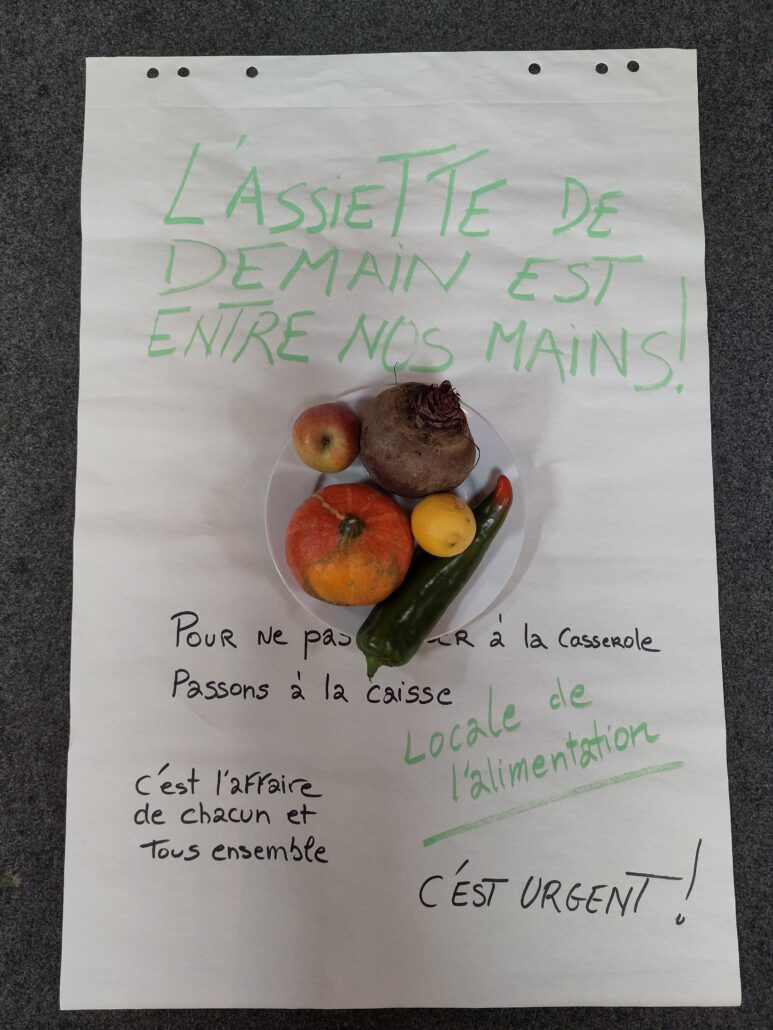 L'ASSIETTE DE
DEMAIN EST
ENTRE NOS MAINS!
Pour ne pas à la casserole
Passons à la caisse
Locale de
l'alimentation
c'est l'affaire
de chacun et
Tous ensemble
C'EST URGENT!